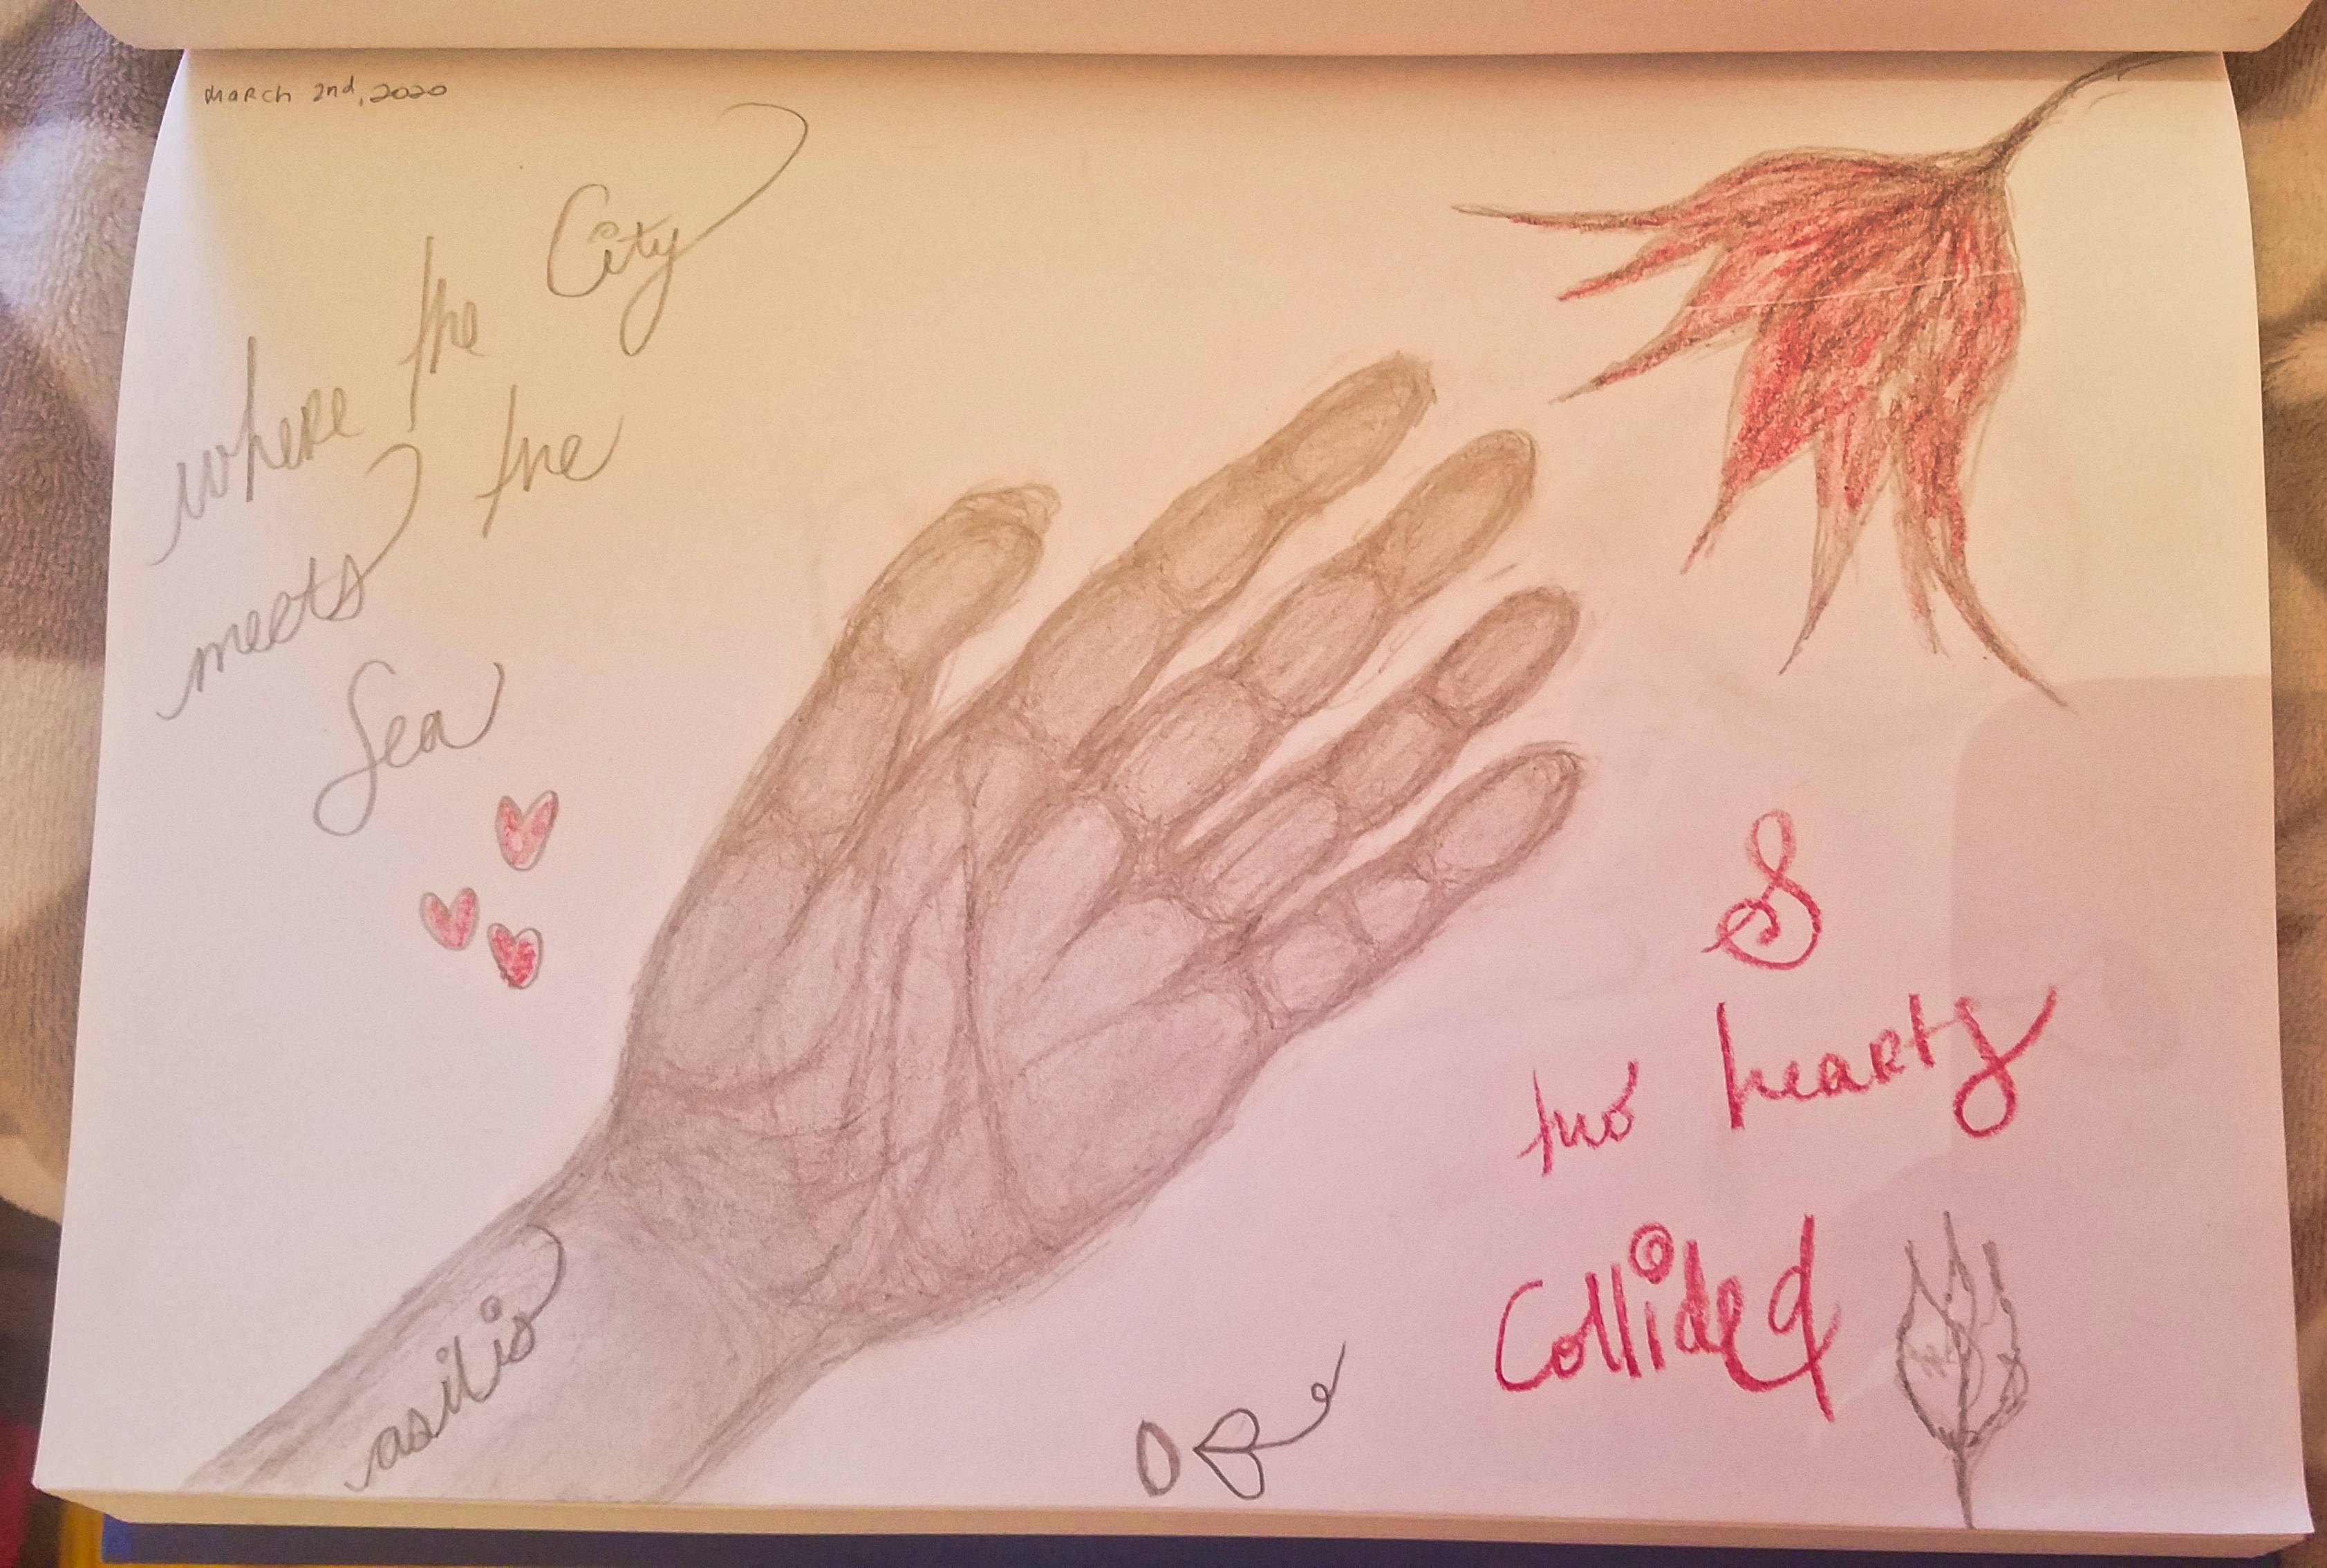 March 2nd, 2020
where the City
meets the
Sea
&
two hearts
Collided
as it is